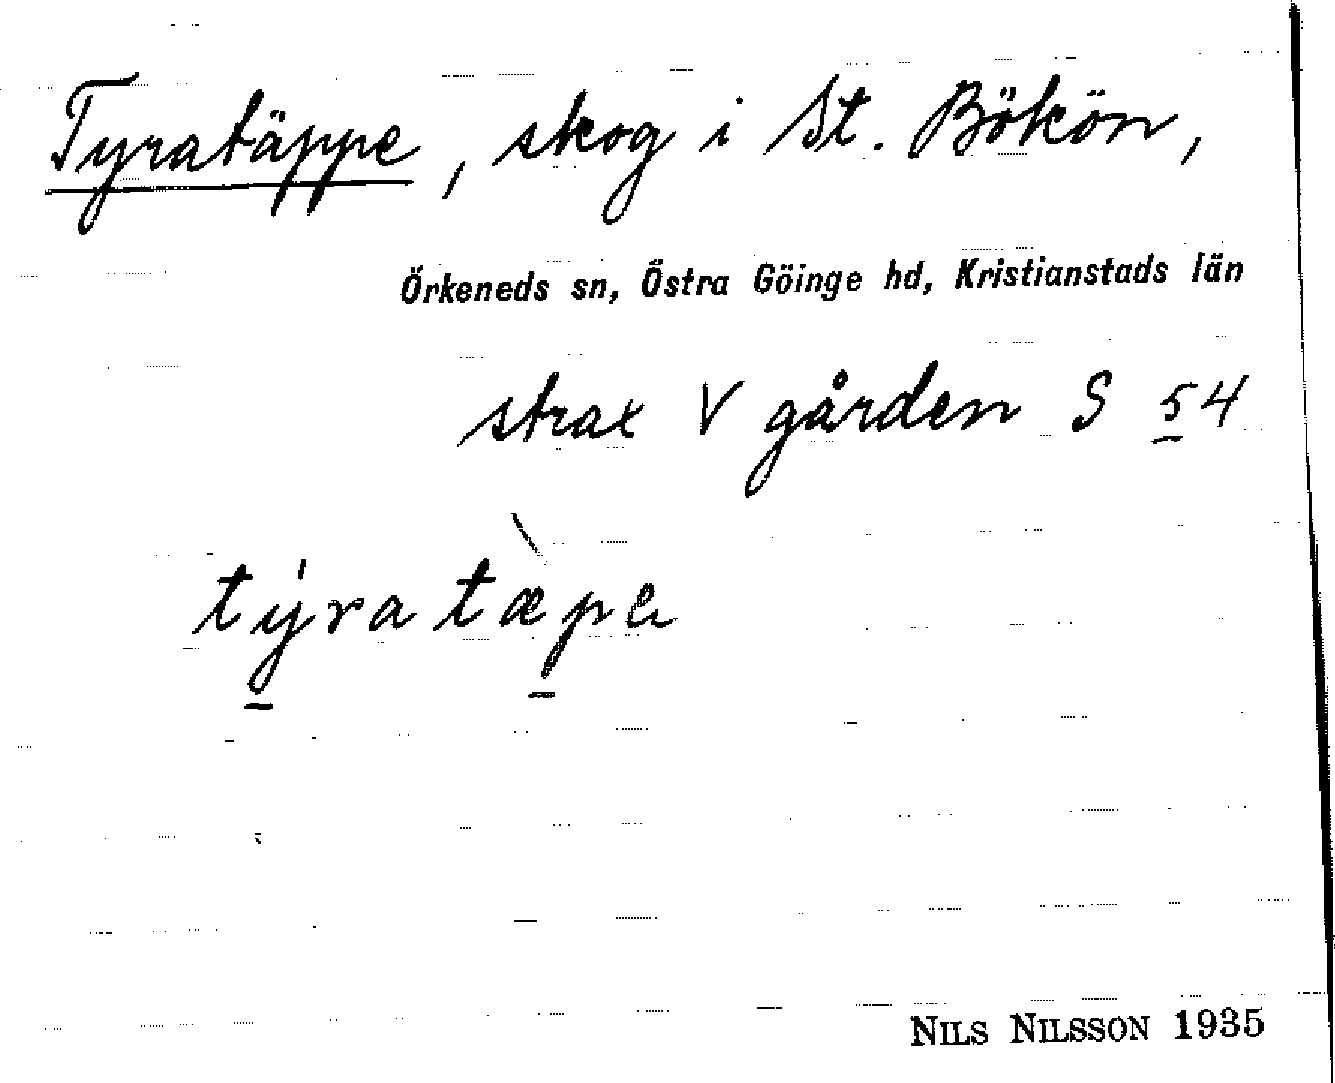 Tyratäppe, skog i St. Bökön,
Örkeneds sn, Östra Göinge hd, Kristianstads län
strax V gården S 54
týratæ̀pa
NILS NILSSON 1935